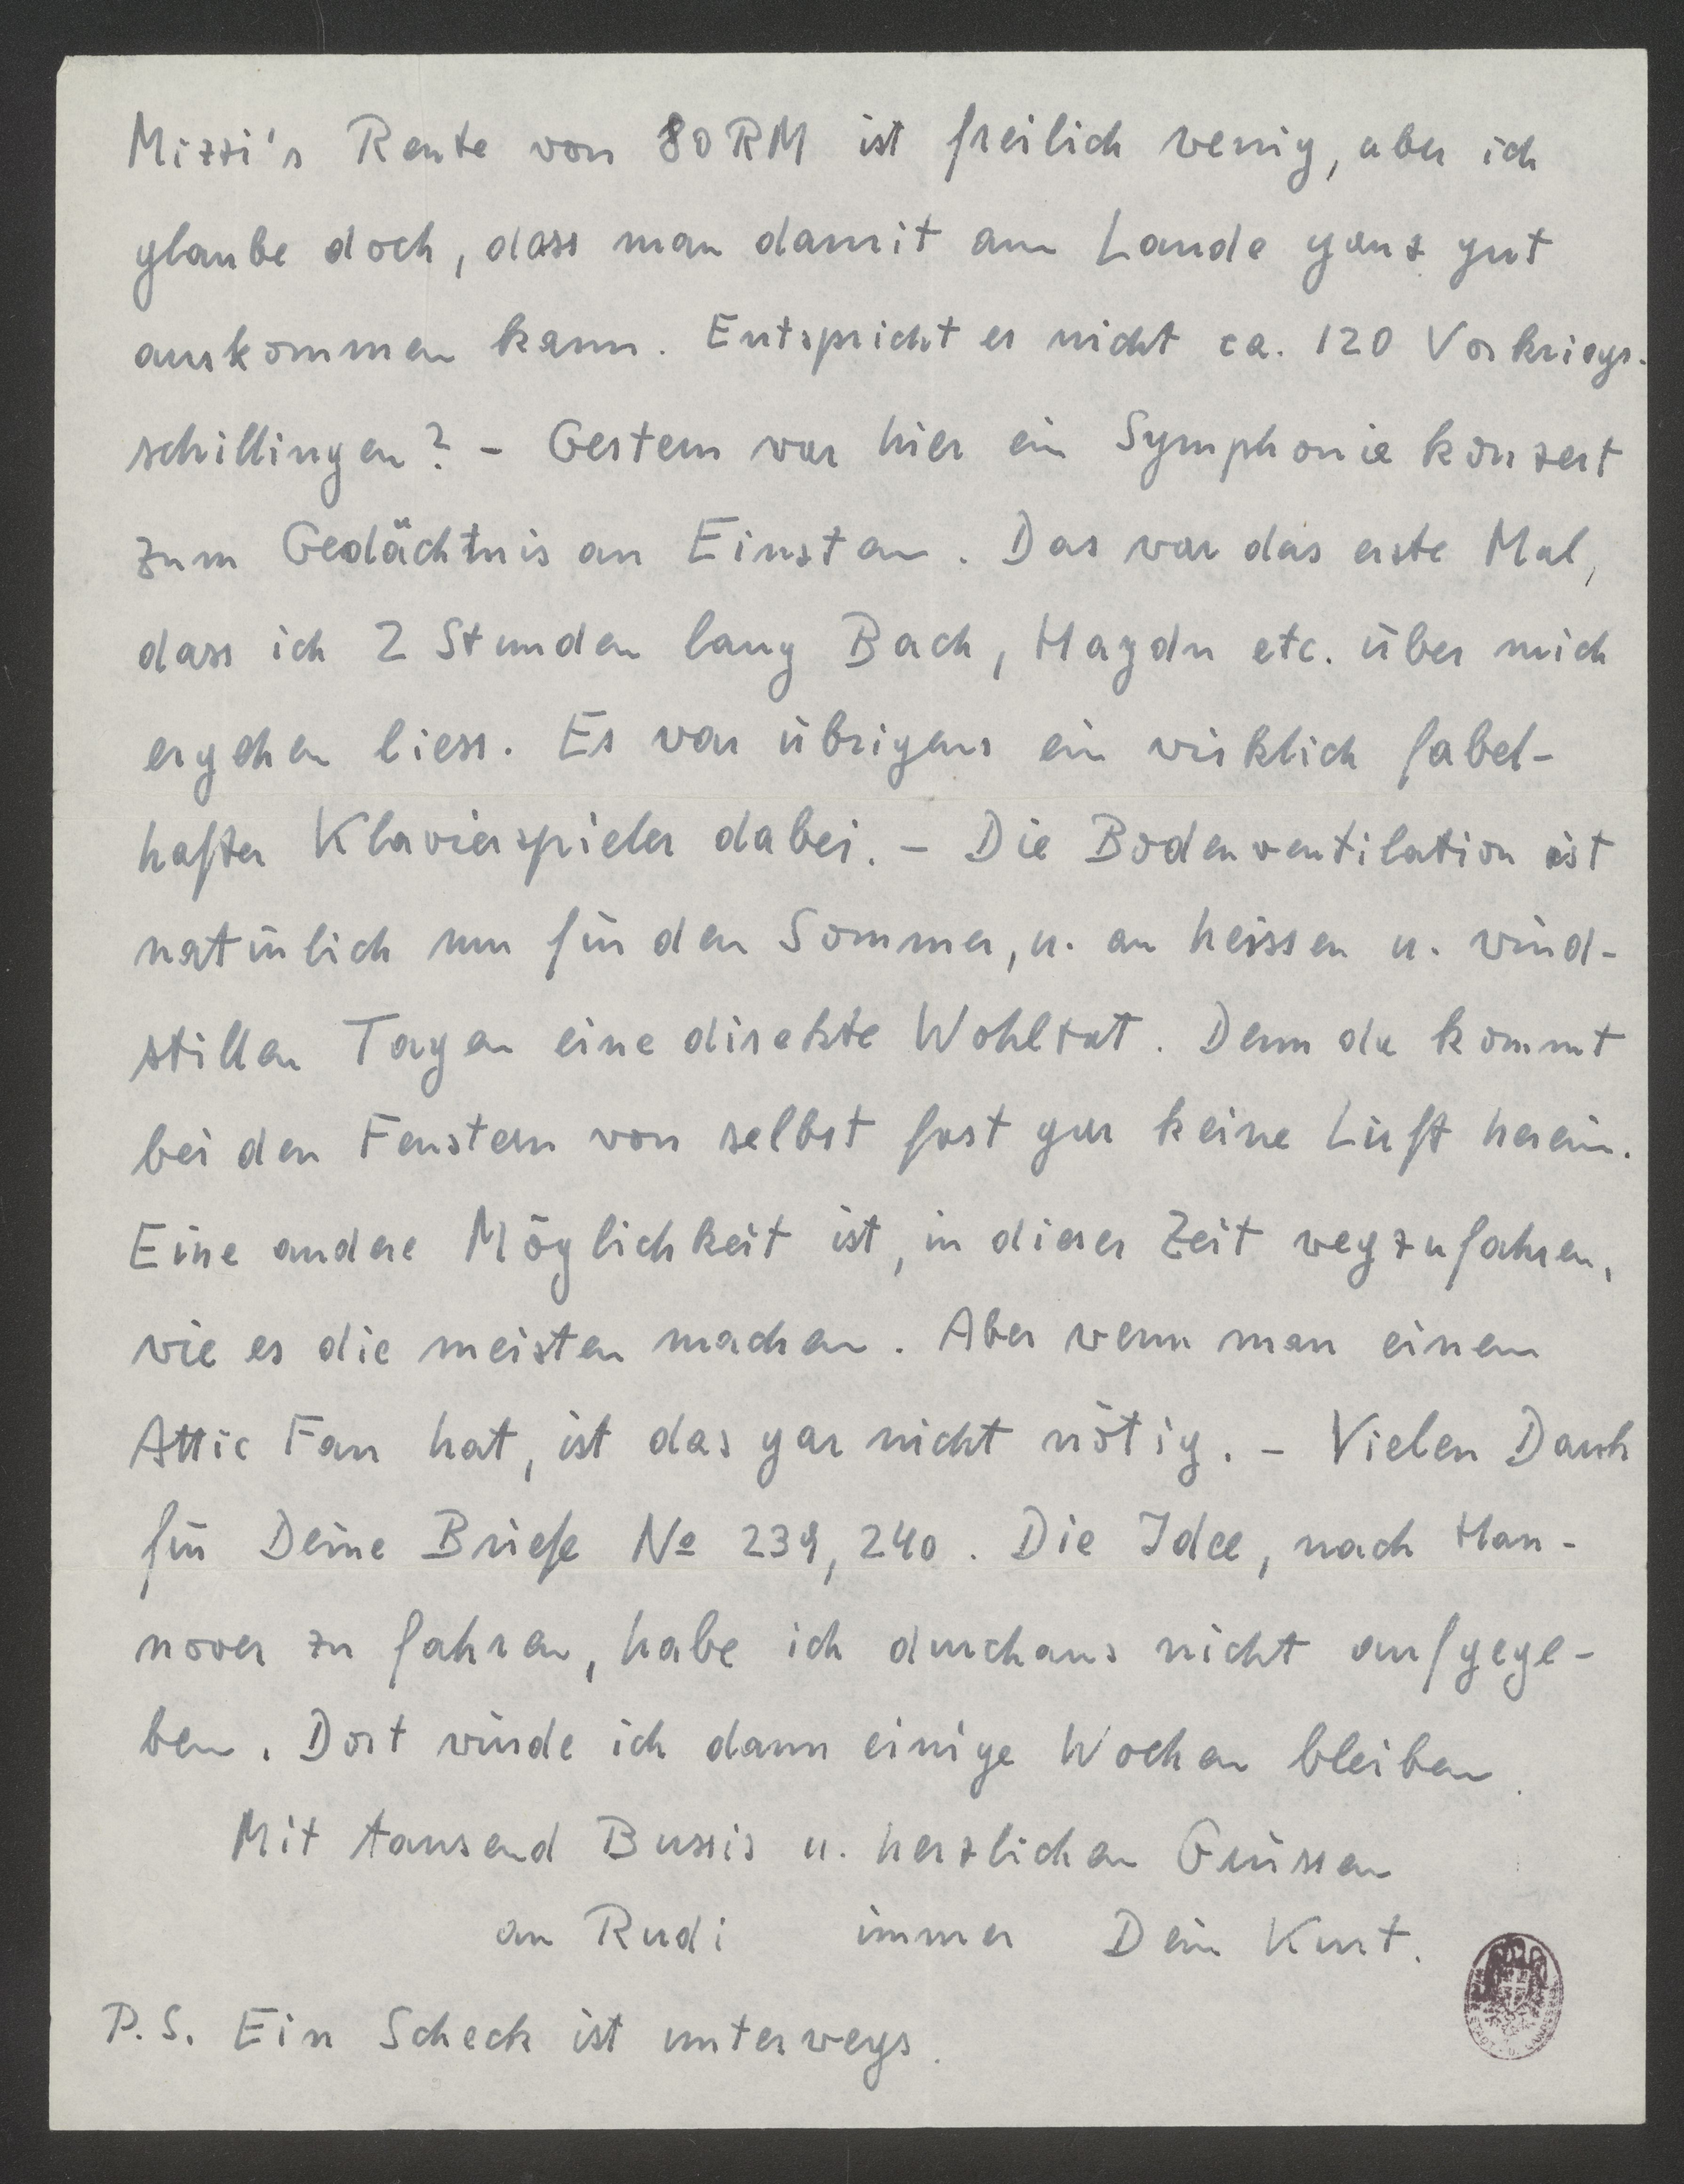 Mizzi's Rente von 80 RM ist freilich wenig, aber ich
glaube doch, dass man damit am Lande ganz gut
auskommen kann. Entspricht es nicht ca. 120 Vorkriegs-
schillingen? – Gestern war hier ein Symphoniekonzert
zum Gedächtnis an Einstan. Das war das erste Mal,
dass ich 2 Stunden lang Bach, Haydn etc. über mich
ergehen liess. Es war übrigens ein wirklich fabel-
hafter Klavierspieler dabei. – Die Bodenventilation ist
natürlich nur für den Sommer, u. an heissen u. wind-
stillen Tagen eine direkte Wohltat. Denn da kommt
bei den Fenstern von selbst fast gar keine Luft herein.
Eine andere Möglichkeit ist, in dieser Zeit wegzufahren,
wie es die meisten machen. Aber wenn man einen
Attic Fan hat, ist das gar nicht nötig. – Vielen Dank
für Deine Briefe No 239, 240. Die Idee, nach Han-
nover zu fahren, habe ich durchaus nicht aufgege-
ben. Dort würde ich dann einige Wochen bleiben.
Mit tausend Bussis u. herzlichen Grüssen
an Rudi immer Dein Kurt.
P.S. Ein Scheck ist unterwegs.